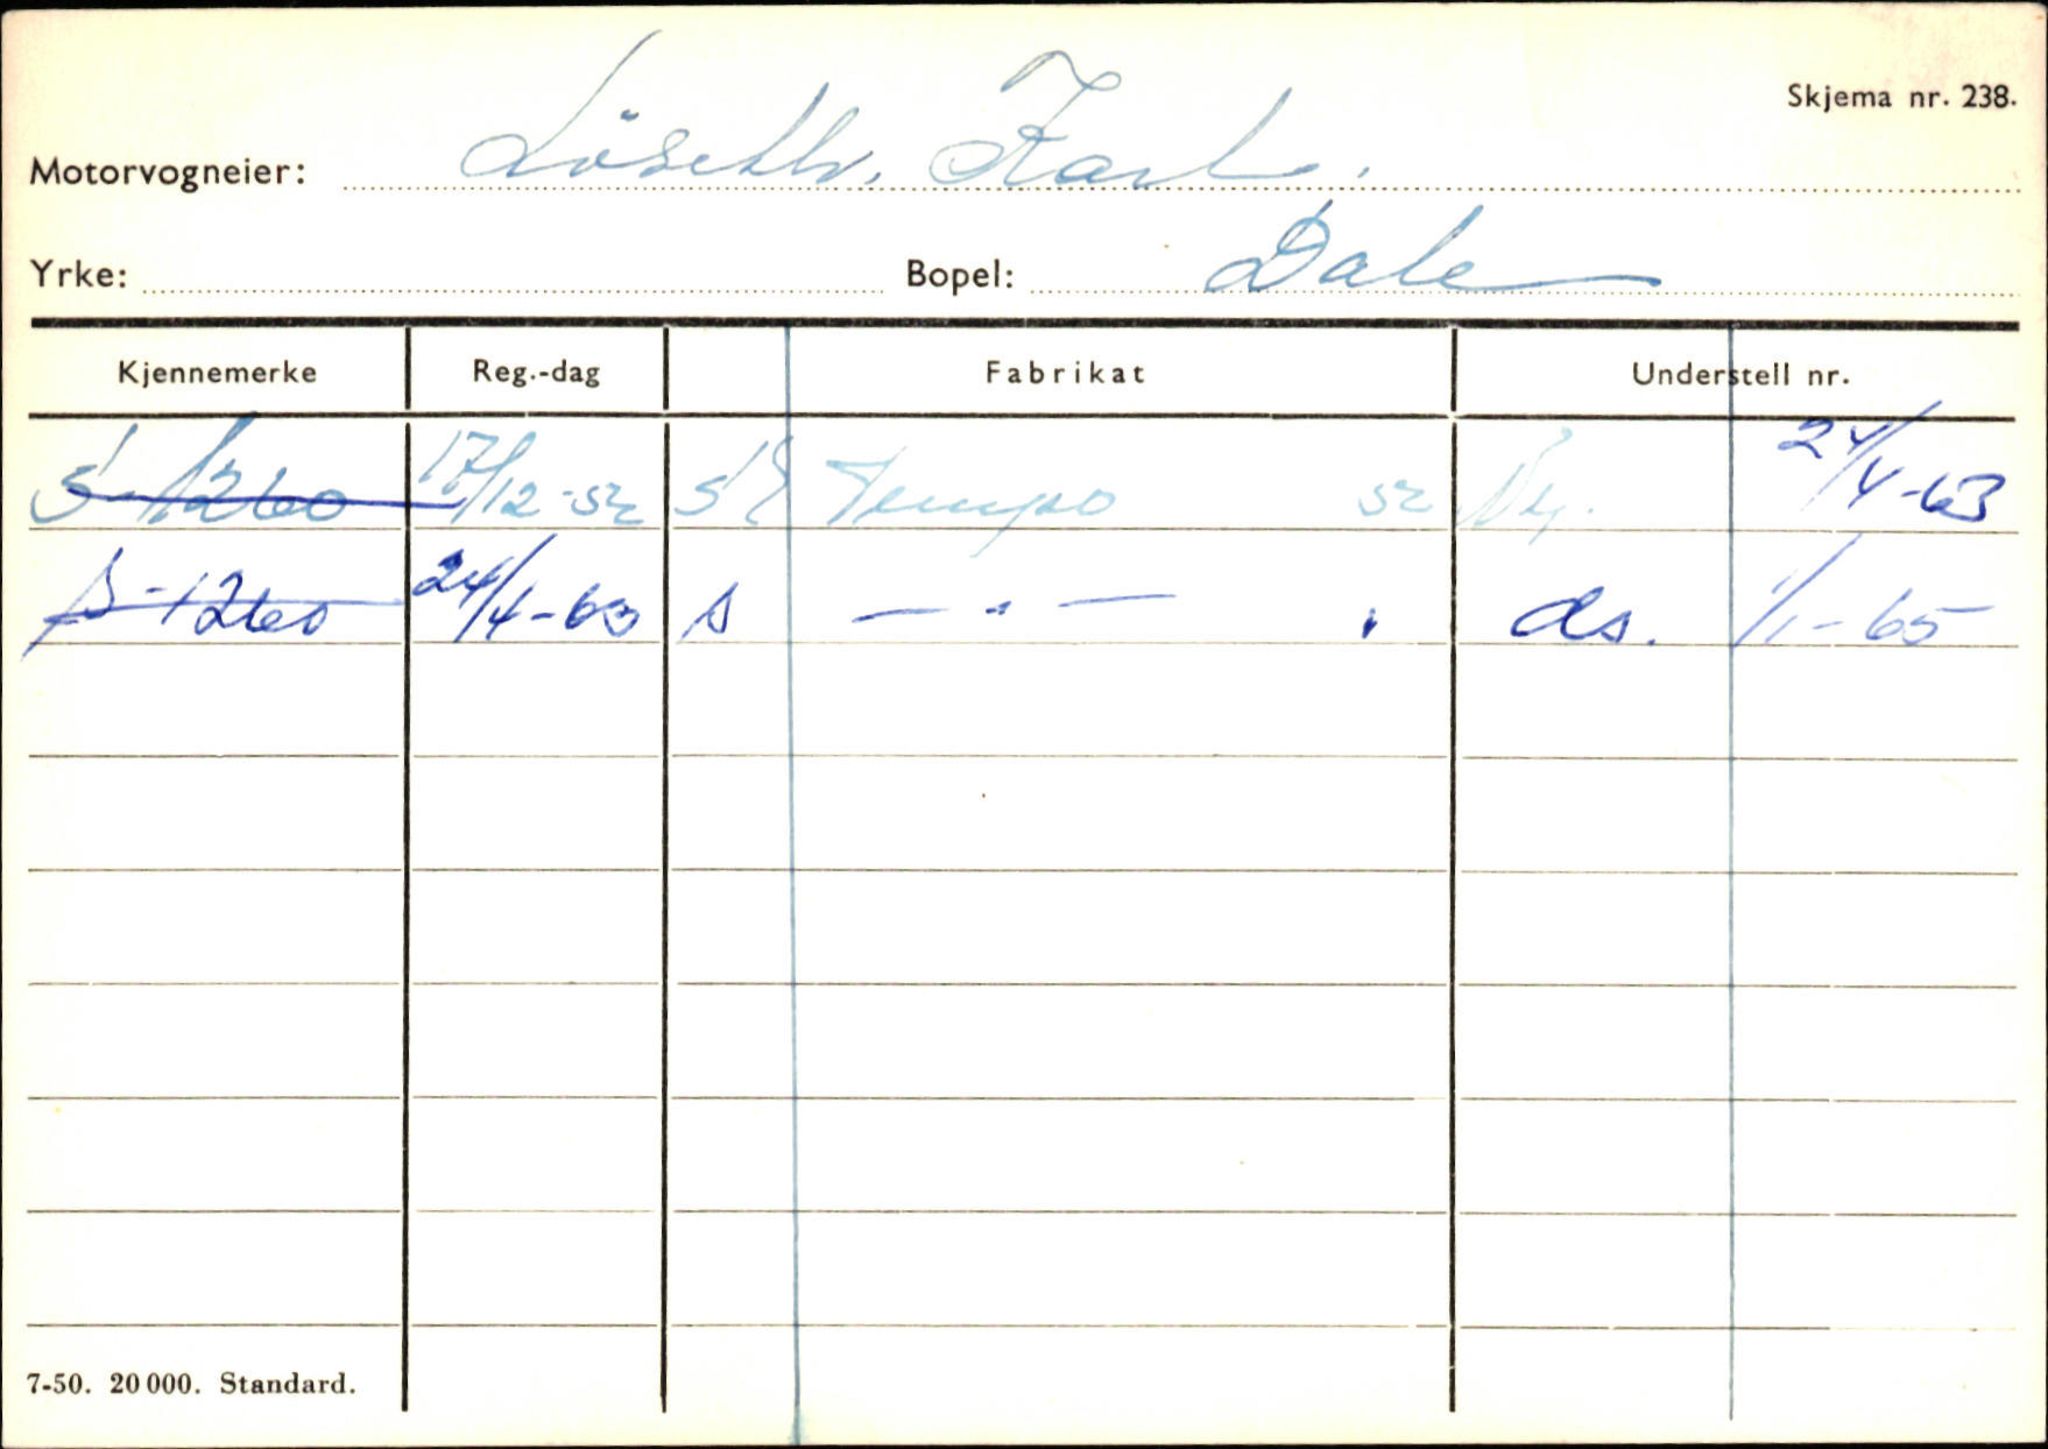 Skjema nr. 238.
Motorvogneier: Löseth, Karl.
Yrke: Bopel: Dale
Kjennemerke Reg.-dag Fabrikat Understell nr.
S-1260 17/12-52 Tempo 52 Ny. 24/4-63
S-1260 24/4-63 s — " — " ds. 1/1-65
7-50. 20 000. Standard.